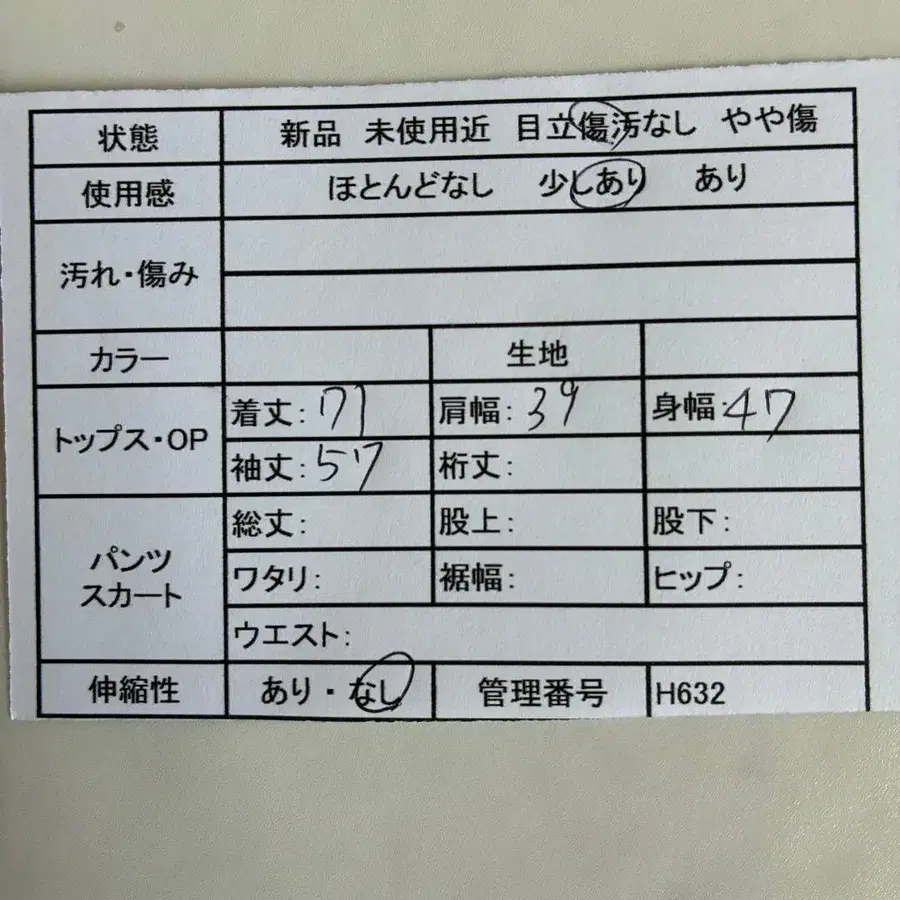 状態 新品 未使用近 目立傷汚なし やや傷
使用感 ほとんどなし 少しあり あり
汚れ・傷み
カラー 生地
トップス・OP
着丈: 71 肩幅: 39 身幅: 47
袖丈: 57 裄丈:
パンツ
スカート
総丈: 股上: 股下:
ワタリ: 裾幅: ヒップ:
ウエスト:
伸縮性 あり・なし 管理番号 H632